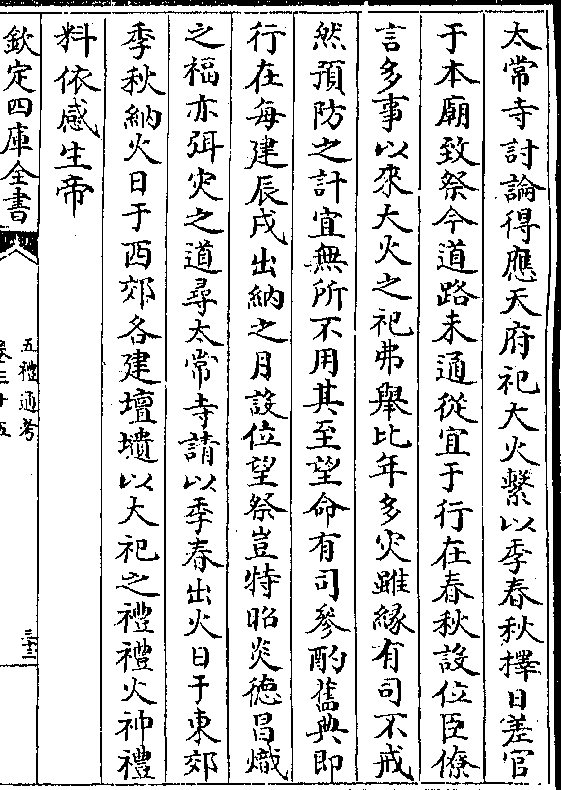 太常寺討論得應天府祀大火繫以季春秋擇日差官
于本廟致祭今道路未通從宜于行在春秋設位臣僚
言多事以來大火之祀弗舉比年多火雖緣有司不戒
然預防之計宜無所不用其至望命有司參酌舊典即
行在每建辰戌出納之月設位望祭豈特昭炎德昌熾
之福亦弭火之道尋太常寺請以季春出火日于東郊
季秋納火日于西郊各建壇壝以大祀之禮禮火神禮
料依感生帝
欽定四庫全書
五禮通考
卷三十五
三十三